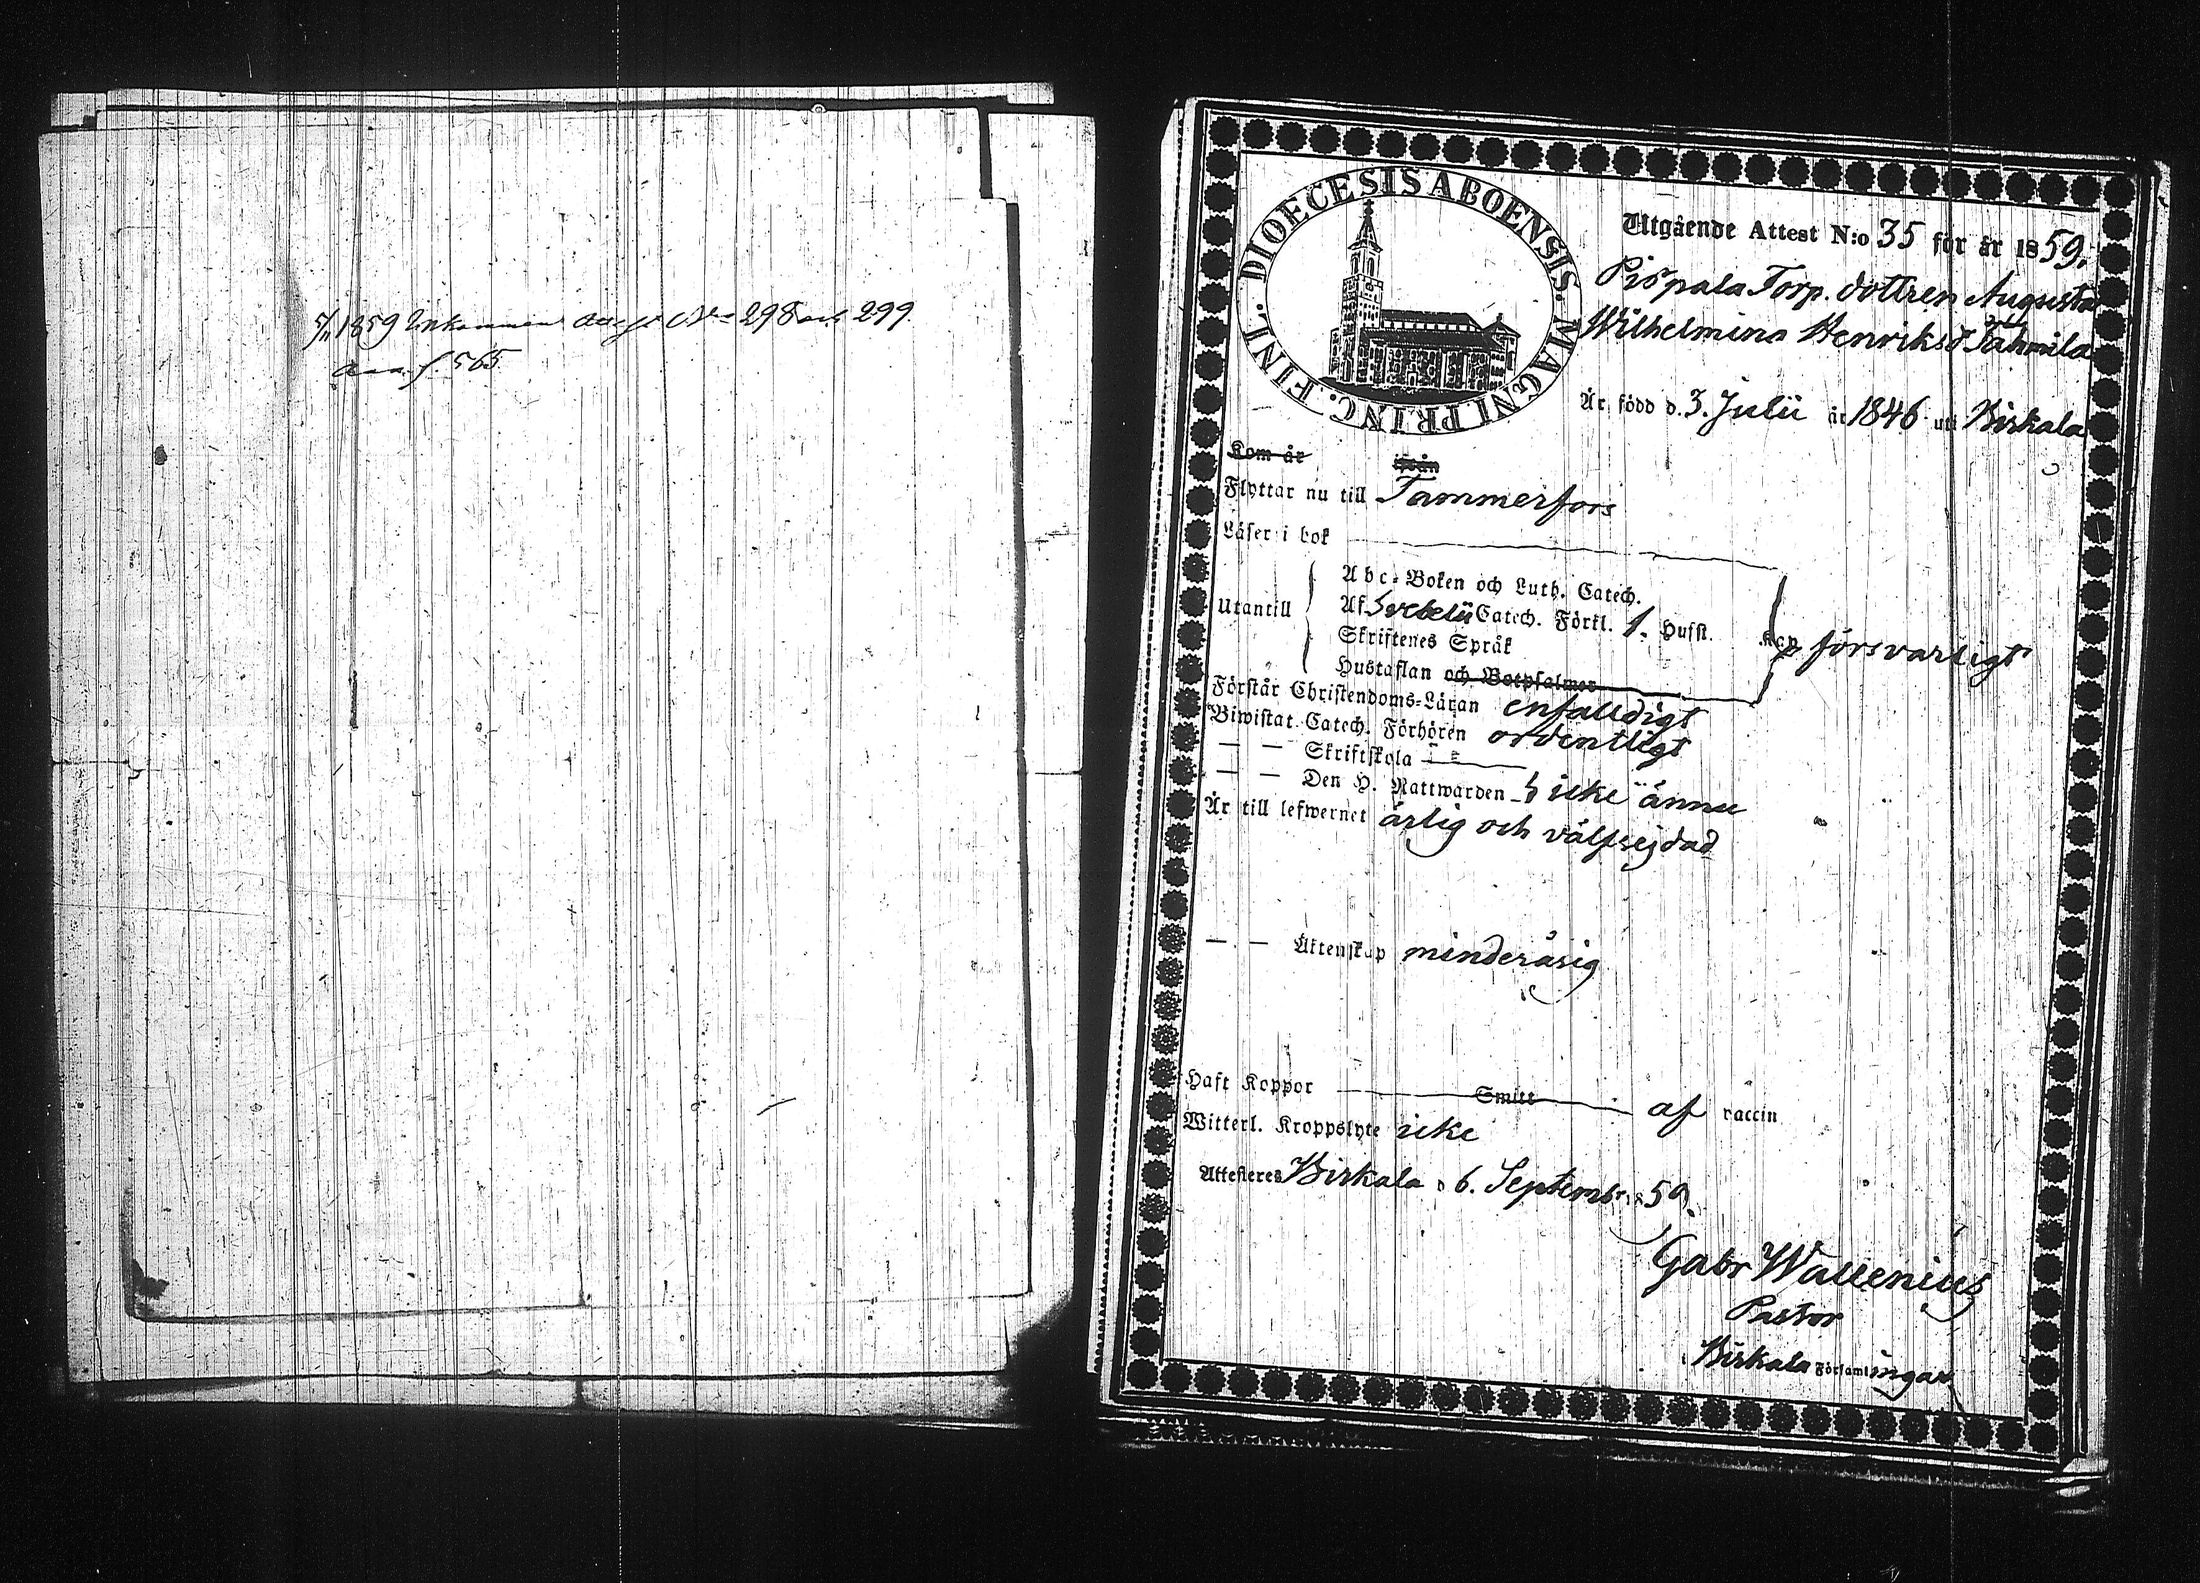 5/11 1859 Inkommen attest No 298 och 299.
f. 565
DIOECESIS ABOENSIS. MAGNI PRINC. FINL.
Utgående Attest N:o 35 för år 1859.
Pispala Torp. dottren Augusta
Wilhelmina Henriksd Tahmila
Är född d. 3. Julii år 1846 uti Birkala
Kom år ifrån
Flyttar nu till Tammerfors
Läser i bok
Utantill
Abc-Boken och Luth. Catech.
Af Svebelii Catech. Förkl. 1. Hufst. Kap försvarligt
Skriftenes Språk
Hustaflan och Botpsalmer
Förstår Christendoms-Läran enfalldigt
Biwistat Catech. Förhören ordentligt
— — Skriftskola
— — Den H. Nattwarden icke ännu
Är till lefwernet ärlig och välfrejdad
— — Äktenskap minderårig
Haft Koppor Smitt af vaccin
Witterl. Kroppslyte icke
Attesteres Birkala d 6. Septembr 1859.
Gabr Wallenius
Pastor
i Birkala Församlingar